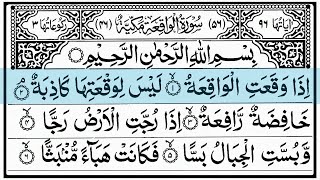 اٰیَاتُهَا ٩٦ (٥٦) سُوْرَةُ الْوَاقِعَةِ مَكِّيَّةٌ (٤٦) رُكُوْعَاتُهَا ٣
بِسْمِ اللّٰهِ الرَّحْمٰنِ الرَّحِيْمِ
اِذَا وَقَعَتِ الْوَاقِعَةُ ١ لَيْسَ لِوَقْعَتِهَا كَاذِبَةٌ ٢
خَافِضَةٌ رَّافِعَةٌ ٣ اِذَا رُجَّتِ الْاَرْضُ رَجًّا ٤
وَّبُسَّتِ الْجِبَالُ بَسًّا ٥ فَكَانَتْ هَبَآءً مُّنْۢبَثًّا ٦